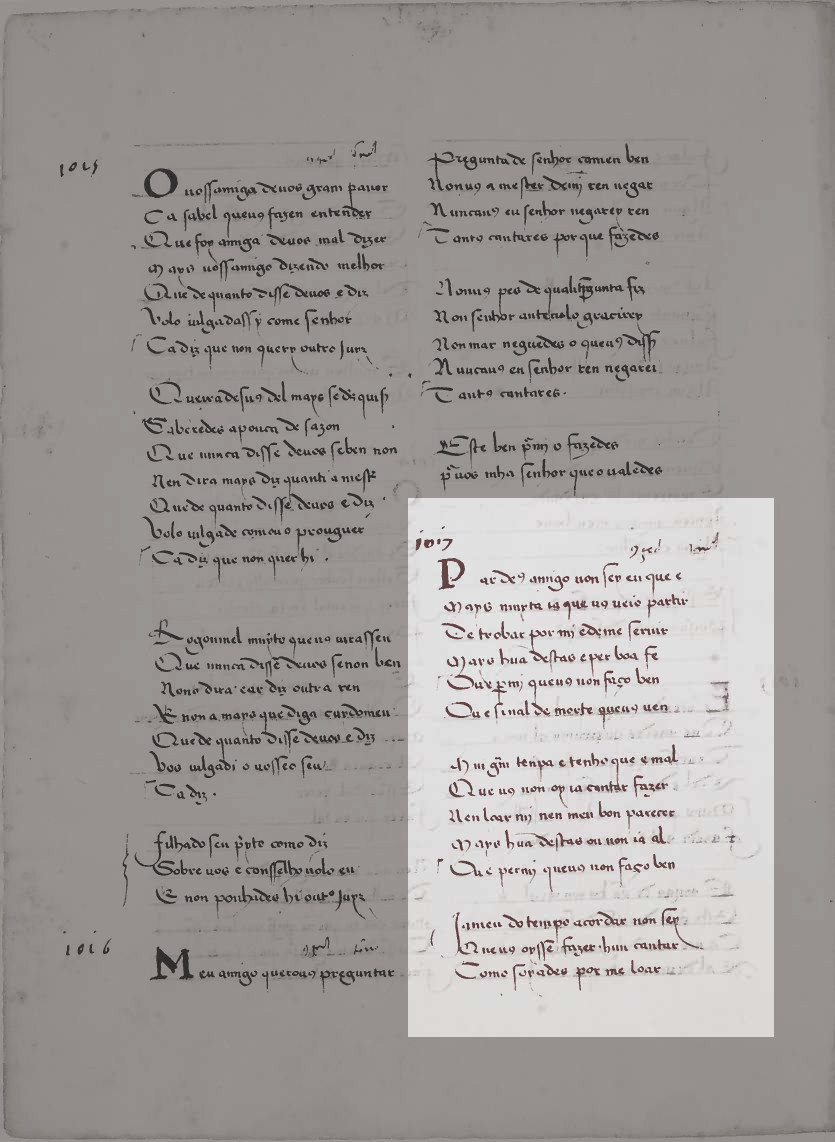 1015
O uossamiga deuos gram pauor
Ca sabel queuꝯ fazen entender
Que foy amiga deuos mal dizer
Mays uossamigo dizendo melhor
Que de quanto disse deuos e diz
Volo iulgadassy come senhor
Ca diz que non query outro Juyz
Queixadesuꝯ del mays se dꝯ quisſ
Saberedes apouca de sazon
Que nunca disse deuos seben non
Nen dira mays diz quanti a mest̃
Quede quanto disse deuos e diz
Volo iulgade comouꝯ prouguer
Ca diz que non quer hi.
Rogoumel muyto queuꝯ uirasseu
Que nunca disse deuos senon ben
Nono dira ear diz outra ren
E non a mays que diga cuydomeu
Quede quanto disse deuos e diz
Vos iulgadi o uosseo seu
Ca diz.
Filhado seu p̃yto como diz
Sobre uos e conselhouolo eu
E non ponhades hi outº Juyz
1016
Meu amigo querouꝯ preguntar
Pregunta de senhor camen ben
Nonuꝯ a mester demj ren negar
Nuncauꝯ eu senhor negarey ren
Tantꝯ cantares por que fazedes
Nonuꝯ pes de qualip̃gunta fiz
Non senhor anteuolo gracirey
Non mar neguedes o queuꝯ diss̃
Nuncauꝯ eu senhor ren negarei
Tantꝯ cantares.
Este ben p̃mj o fazedes
p̃uos mha senhor que o ualedes
1017
Par deꝯ amigo non sey eu que e
Mays muyta ia que uꝯ ueio partir
De trobar por mj edeme seruir
Mays hũa destas e per boa fe
Ou e p̱ mj queuꝯ non faço ben
Ou e sinal de morte queuꝯ uen
Mui gm̃ tenpa e tenho que e mal
Que uꝯ non oy ia cantar fazer
Nen loar mj nen meu bon parecer
Mays hũa destas ou non ia al
Ou e permj queuꝯ non faço ben
Jameu do tempo acordar non sey
Queuꝯ oysse fazer hun cantar
Como soyades por me loar